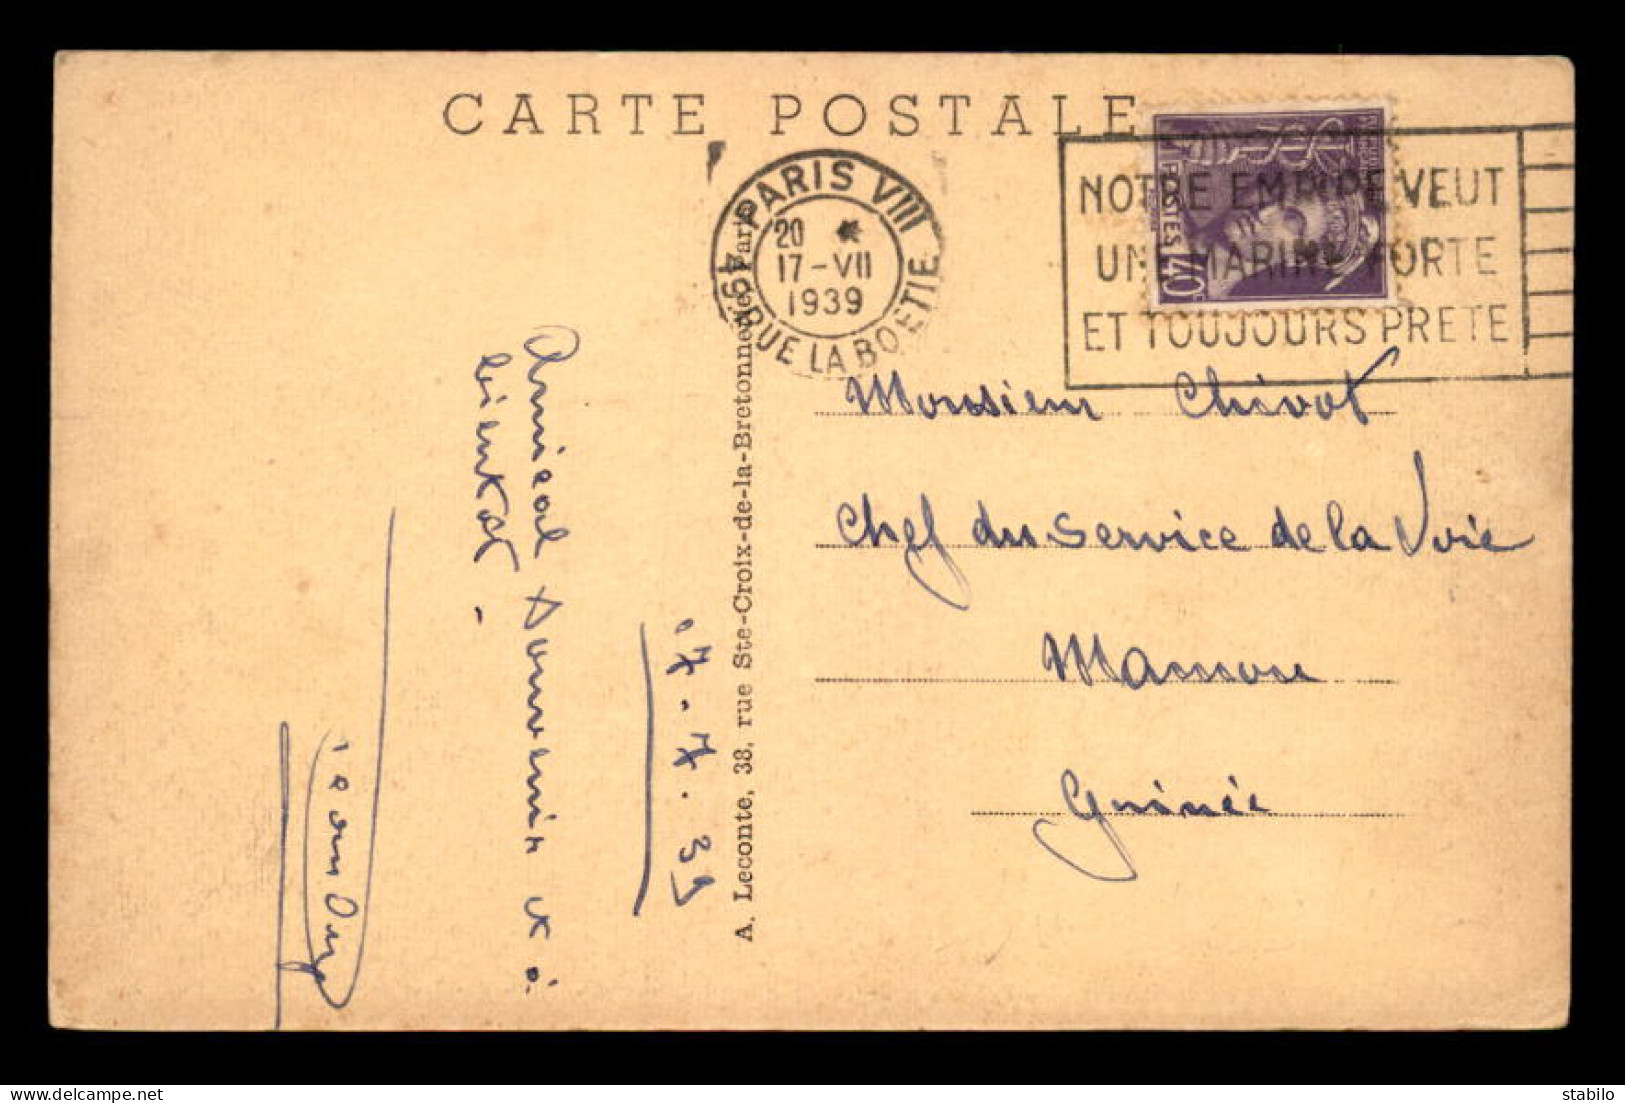 CARTE POSTALE
PARIS VIII
20 *
17-VII
1939
49, RUE LA BOETIE
NOTRE EMPIRE VEUT
UNE MARINE FORTE
ET TOUJOURS PRETE
POSTES 40c
Monsieur Chivot
Chef du Service de la Voie
Mamou
Guinée
A. Leconte, 38, rue Ste-Croix-de-la-Bretonnerie, Paris
17-7.39
Amical Souvenir et à
bientôt -
delcampe.net
stabilo